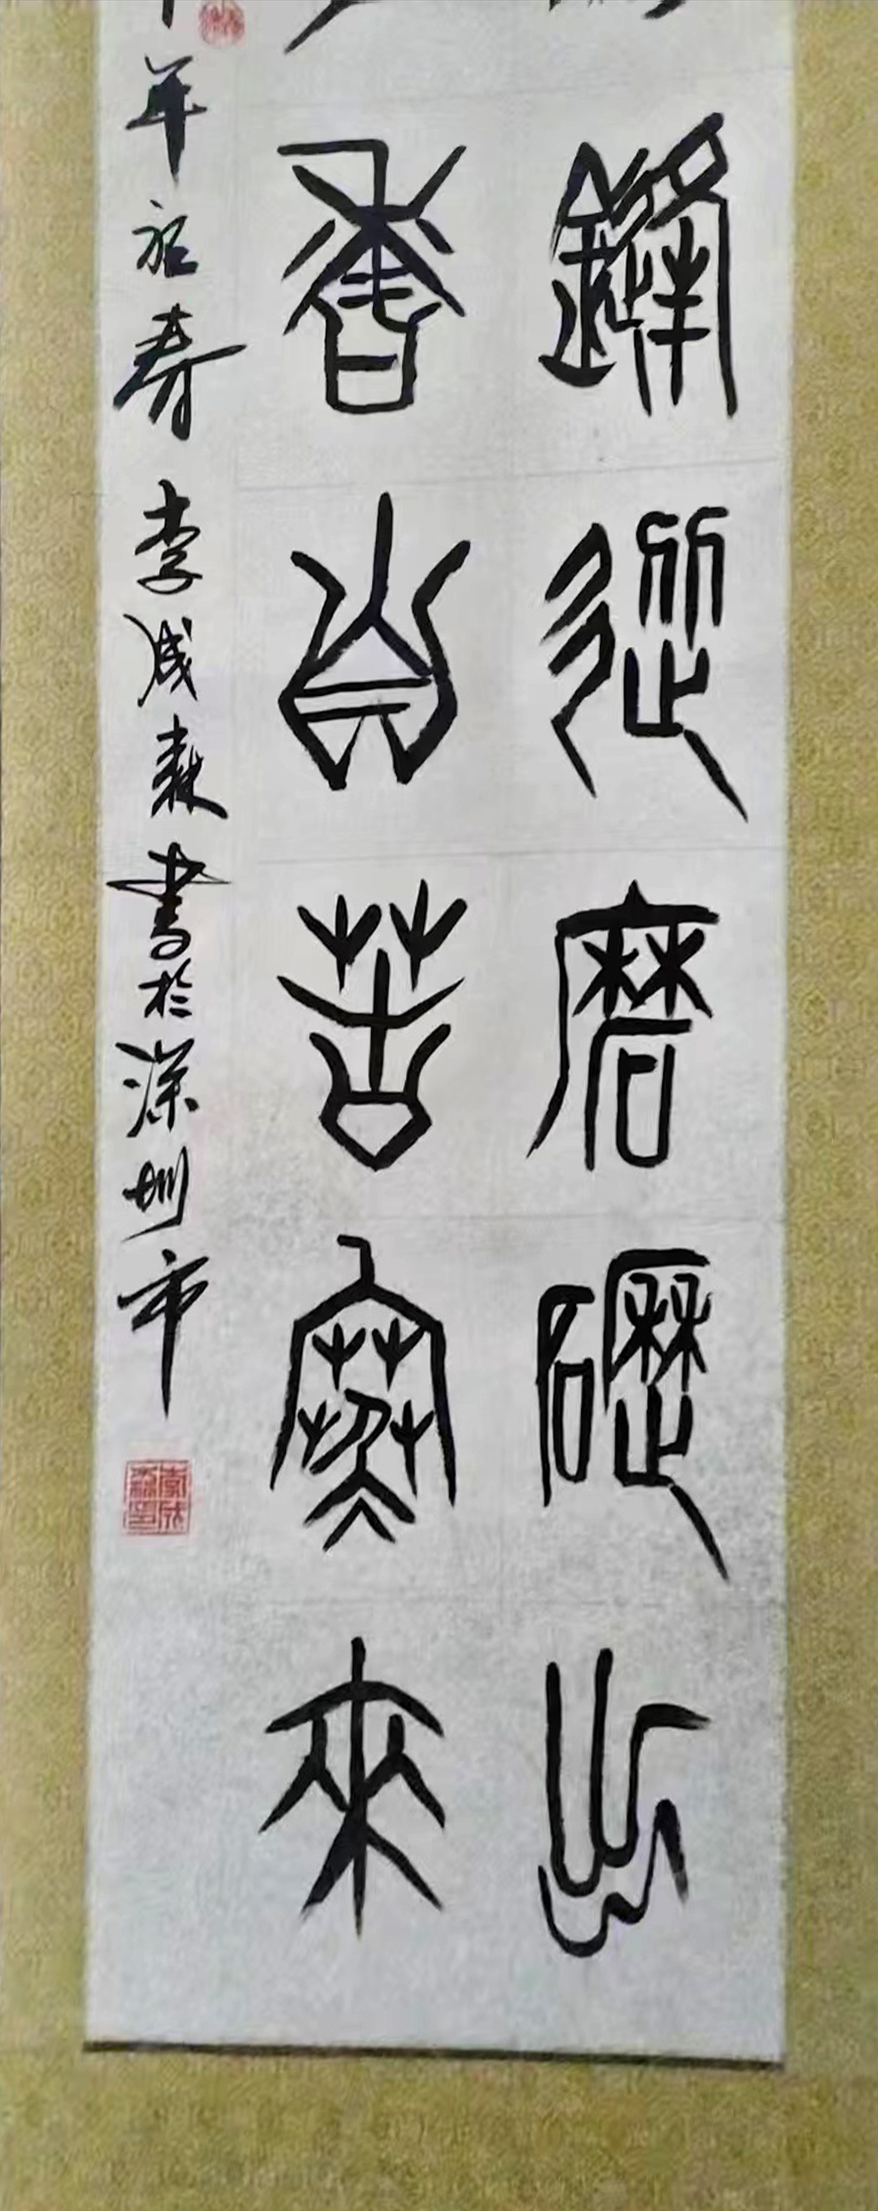 鋒從磨礪出
香自苦寒來
年初春李成森書於深圳市
李成森印